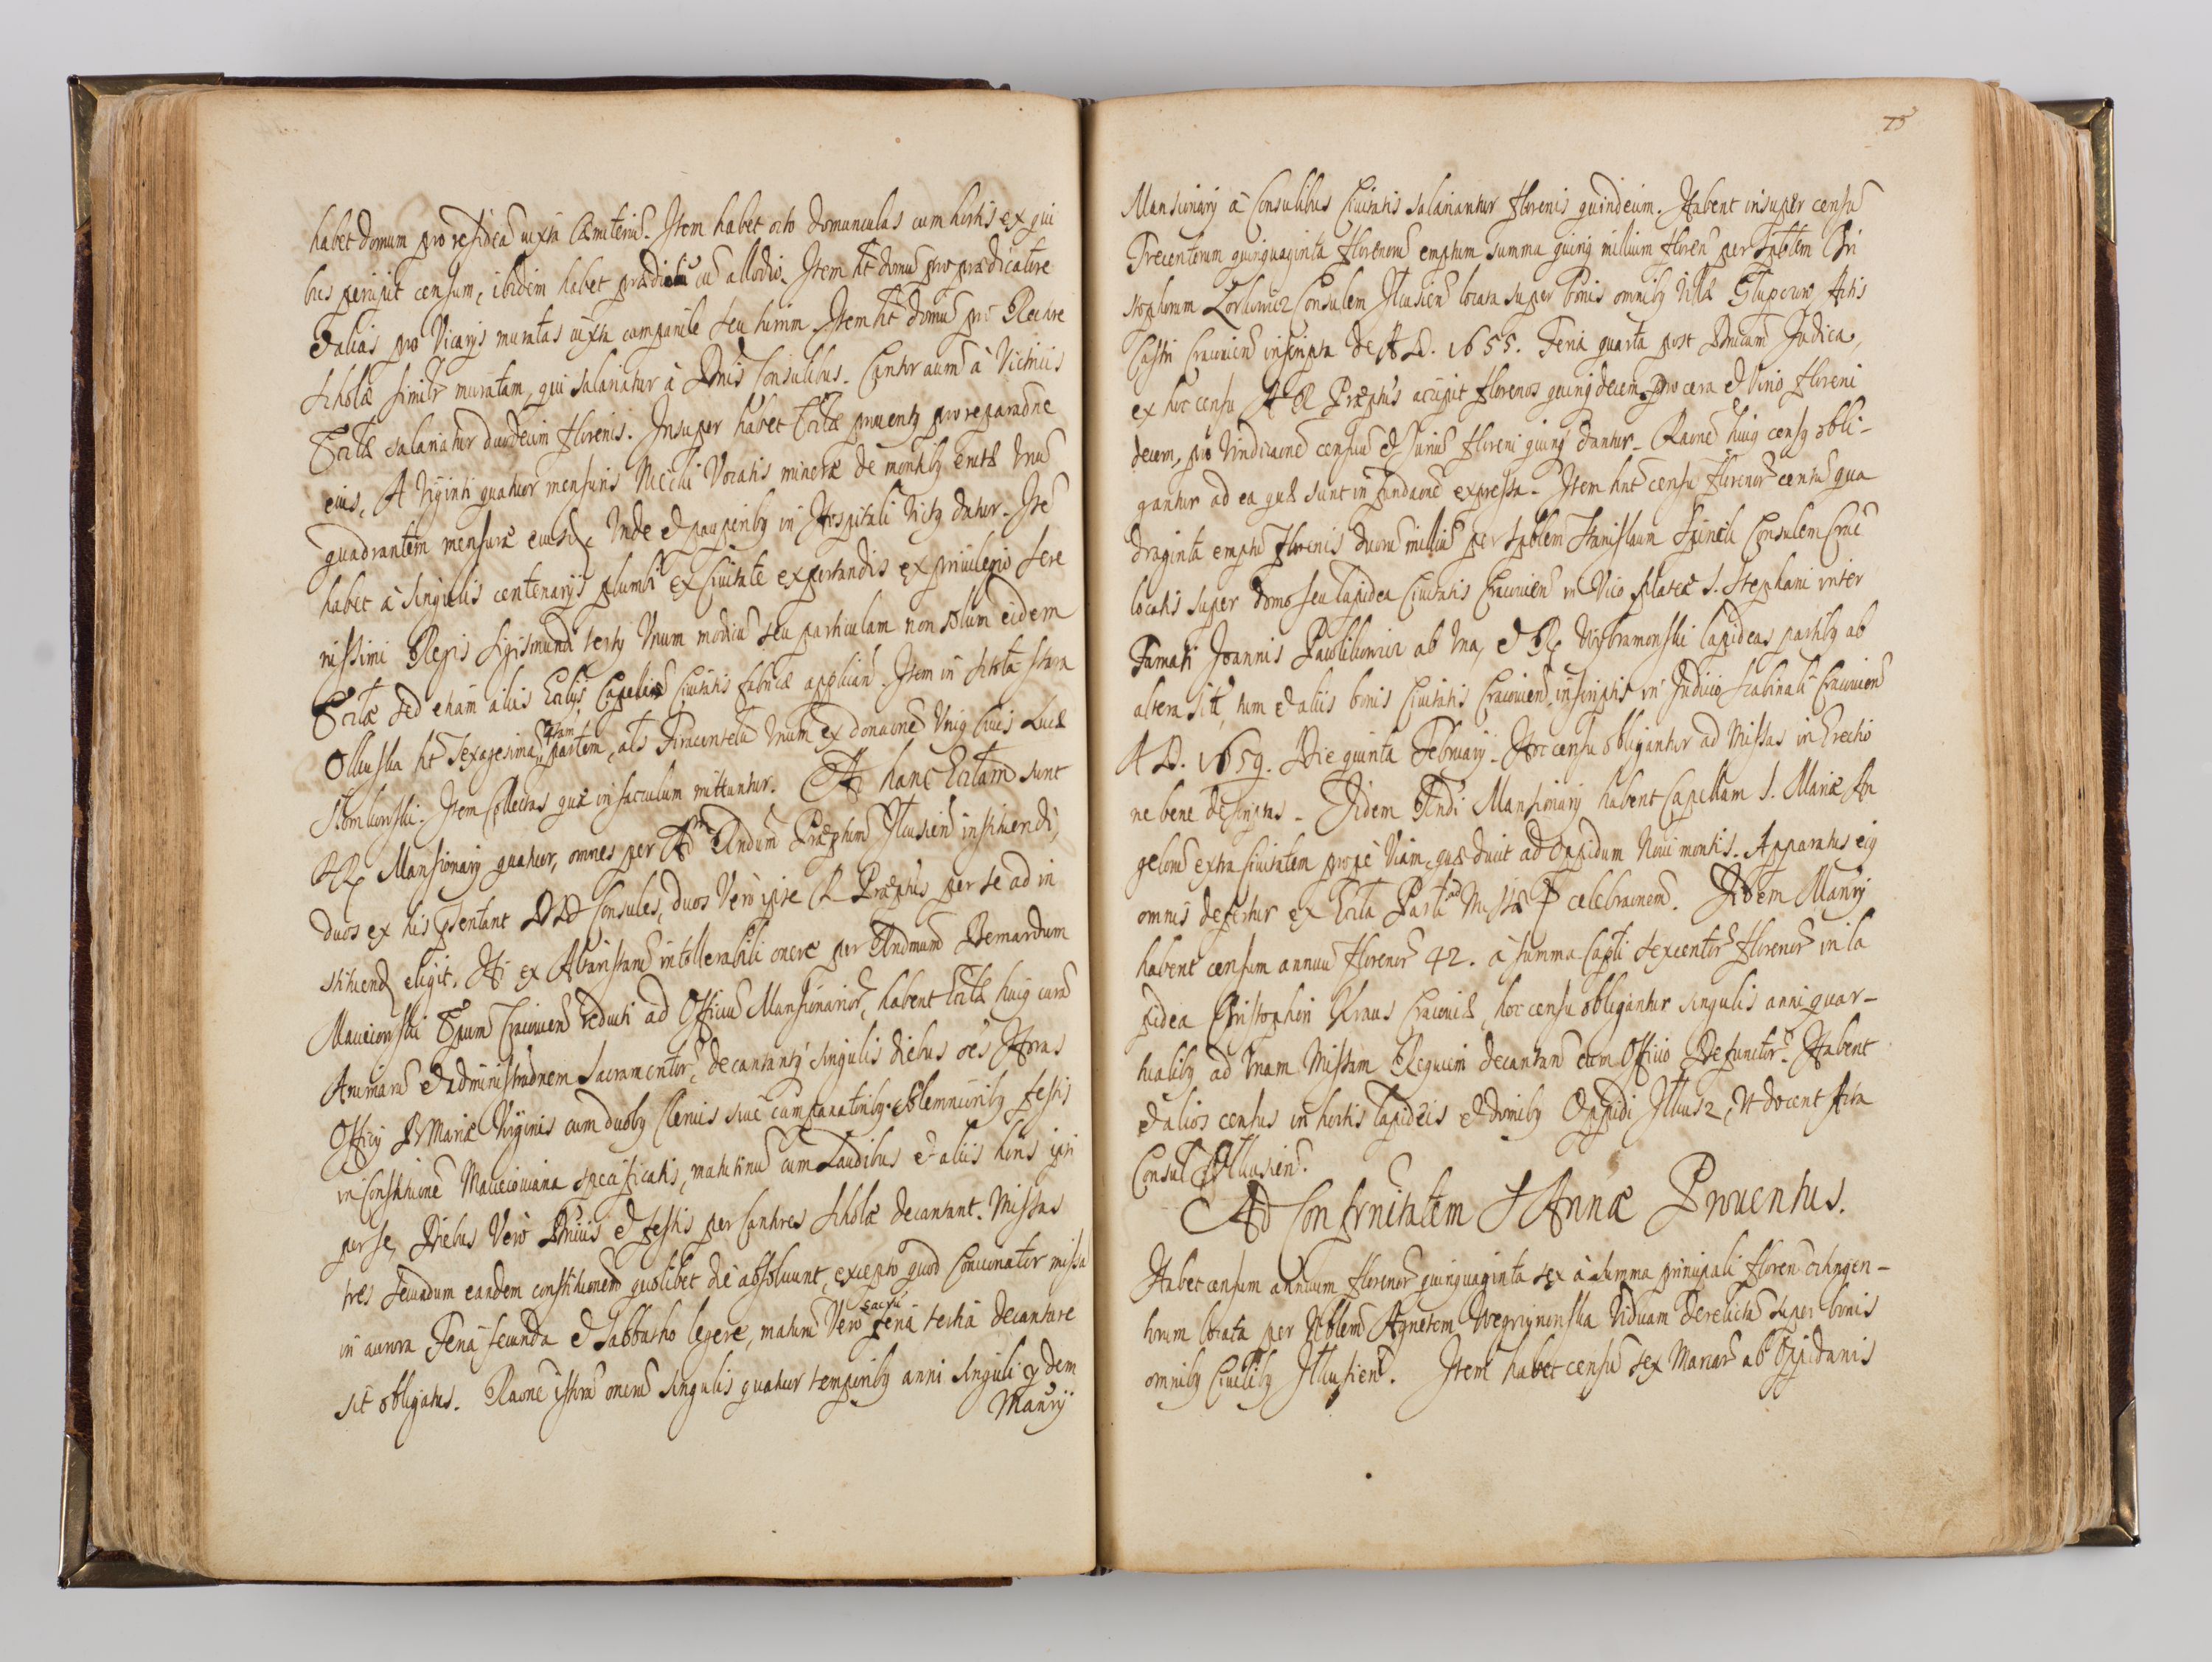 habet domum pro residea iuxta Cæmiteriũ. Item habet octo domunculas cum hortis ex qui
bus percipit censum, ibidem habet prædiolũ cũ allodio. Item ht domũ pro prædicatore
et alias pro Vicarijs muratas iuxta campanile seu turrim. Item ht domũ pro Rectore
Scholæ similr muratam, qui salariatur à Dnis Consulibus. Cantor autẽ à Vicinis
Eccliæ salariatur duodecim florenis. Insuper habet Ecclia prouentus pro reparaone
eius, A Viginti quatuor mensuris Niecki Vocatis mineræ de montibus erutæ Vnũ
quadrantem mensuræ eiusd, Vnde et pauperibus in Hospitali Victus datur. Itẽ
habet à singulis centenarijs plumbi ex Ciuitate exportandis ex priuilegio Sere
nissimi Regis Sigismundi tertij Vnum modiũ seu particulam non solum eidem
Eccliæ sed etiam aliis Eccliis Capelisq Ciuitatis fabricæ applican. Item in Schola stara
Olkuska ht sexagesimã quartam partem, als Firacentela Vnum ex donaone Vnius Ciuis Lucæ
Slomkowski. Item Collectas quæ in sacculum mittuntur. Ad hanc Eccliam sunt
RR Mansionarij quatuor, omnes per Adm Rndum Præptum Ilcusien instituendi,
duos ex his pstentant DD Consules, duos Vero ipse R Præptus per se ad in
stituend eligit. Hi ex Altaristarũ intollerabili onere per Rndmum Bernardum
Macieiowski Epum Cracouien reducti ad Officiũ Mansionarior, habent Eccliæ huius curã
Animarũ et administraonem Sacramentor, decantantq singulis diebus oes Horas
Officij B Mariæ Virginis cum duobus Clericis siue campanatoribus, Solemnioribus festis
in Constituione Macieiouiana specificatis, matutinũ cum Laudibus et aliis horis ipsi
per se, Diebus Vero Dnicis et festis per Cantores Scholæ decantant. Missas
tres secundum eandem constitutionem quolibet die absoluunt, excepto quod Concionator missã
in aurora Feria secunda et Sabbatho legere, maturã Vero sacrũ feria tertia decantare
sit obligatus. Raone istorũ onerũ singulis quatuor temporibus anni singuli qdem
Manrij
75
Mansionarij à Consulibus Ciuitatis salariantur florenis quindecim. Habent insuper censũ
Trecentorum quinquaginta florenorũ emptum summa quinq millium floren per Spblem Chri
stophorum Lorkowicz Consulem Ilcusien locata super bonis omnibus Villæ Glupczow Actis
Castri Cracouien inscripta de A D. 1655. Feria quarta post Dnicam Judica,
ex hoc censu A R Præptus accipit florenos quinqdecem, pro cera et Vino floreni
decem, pro Vindicaone censuũ et Juriũ floreni quinq dantur. Raone huius census obli-
gantur ad ea quæ sunt in fundaone expressa. Item hnt censũ florenor centũ qua
draginta emptũ florenis duorũ milliũ per Spblem Stanislaum Spinek Consulem Crac
locatis super domo seu lapidea Ciuitatis Cracouien in Vico plateæ S. Stephani inter
Famati Joannis Pawlikowicz ab Vna, et R Wybramowski lapideas partibus ab
altera sitt, tum et aliis bonis Ciuitatis Cracouien inscriptis in Judicio Scabinali Cracouien
A D. 1659. Die quinta February. Hoc censu obligantur ad Missas in Erectio
ne bene descriptas. Jidem Rndi Mansionarij habent Capellam S. Mariæ An
gelorũ extra Ciuitatem prope Viam, quæ ducit ad oppidum Noui montis. Apparatus eius
omnis defertur ex Ecclia Parli ad Missæ celebraonem. Jidem Manrij
habent censum annuũ florenor 42. à summa Capli sexcentor florenor in la
pidea Christophori Kraus Cracouiæ, hoc censu obligantur singulis anni quar-
tualibus ad Vnam Missam Requiem decantan cum Officio Defunctor. Habent
et alios census in hortis lapideis et domibus Oppidi Ilkusz, Vt docent Acta
Consul Ilkusien.
Ad Confrnitatem S Annæ Prouentus.
Habet censum annuum florenor quinquaginta sex à summa principali floren octingen-
torum locata per Nblem Agnetem Wegrzynowska Viduam derelictã super bonis
omnibus Ciuilibus Ilkusien. Item habet censũ sex Marcar ab Oppidanis